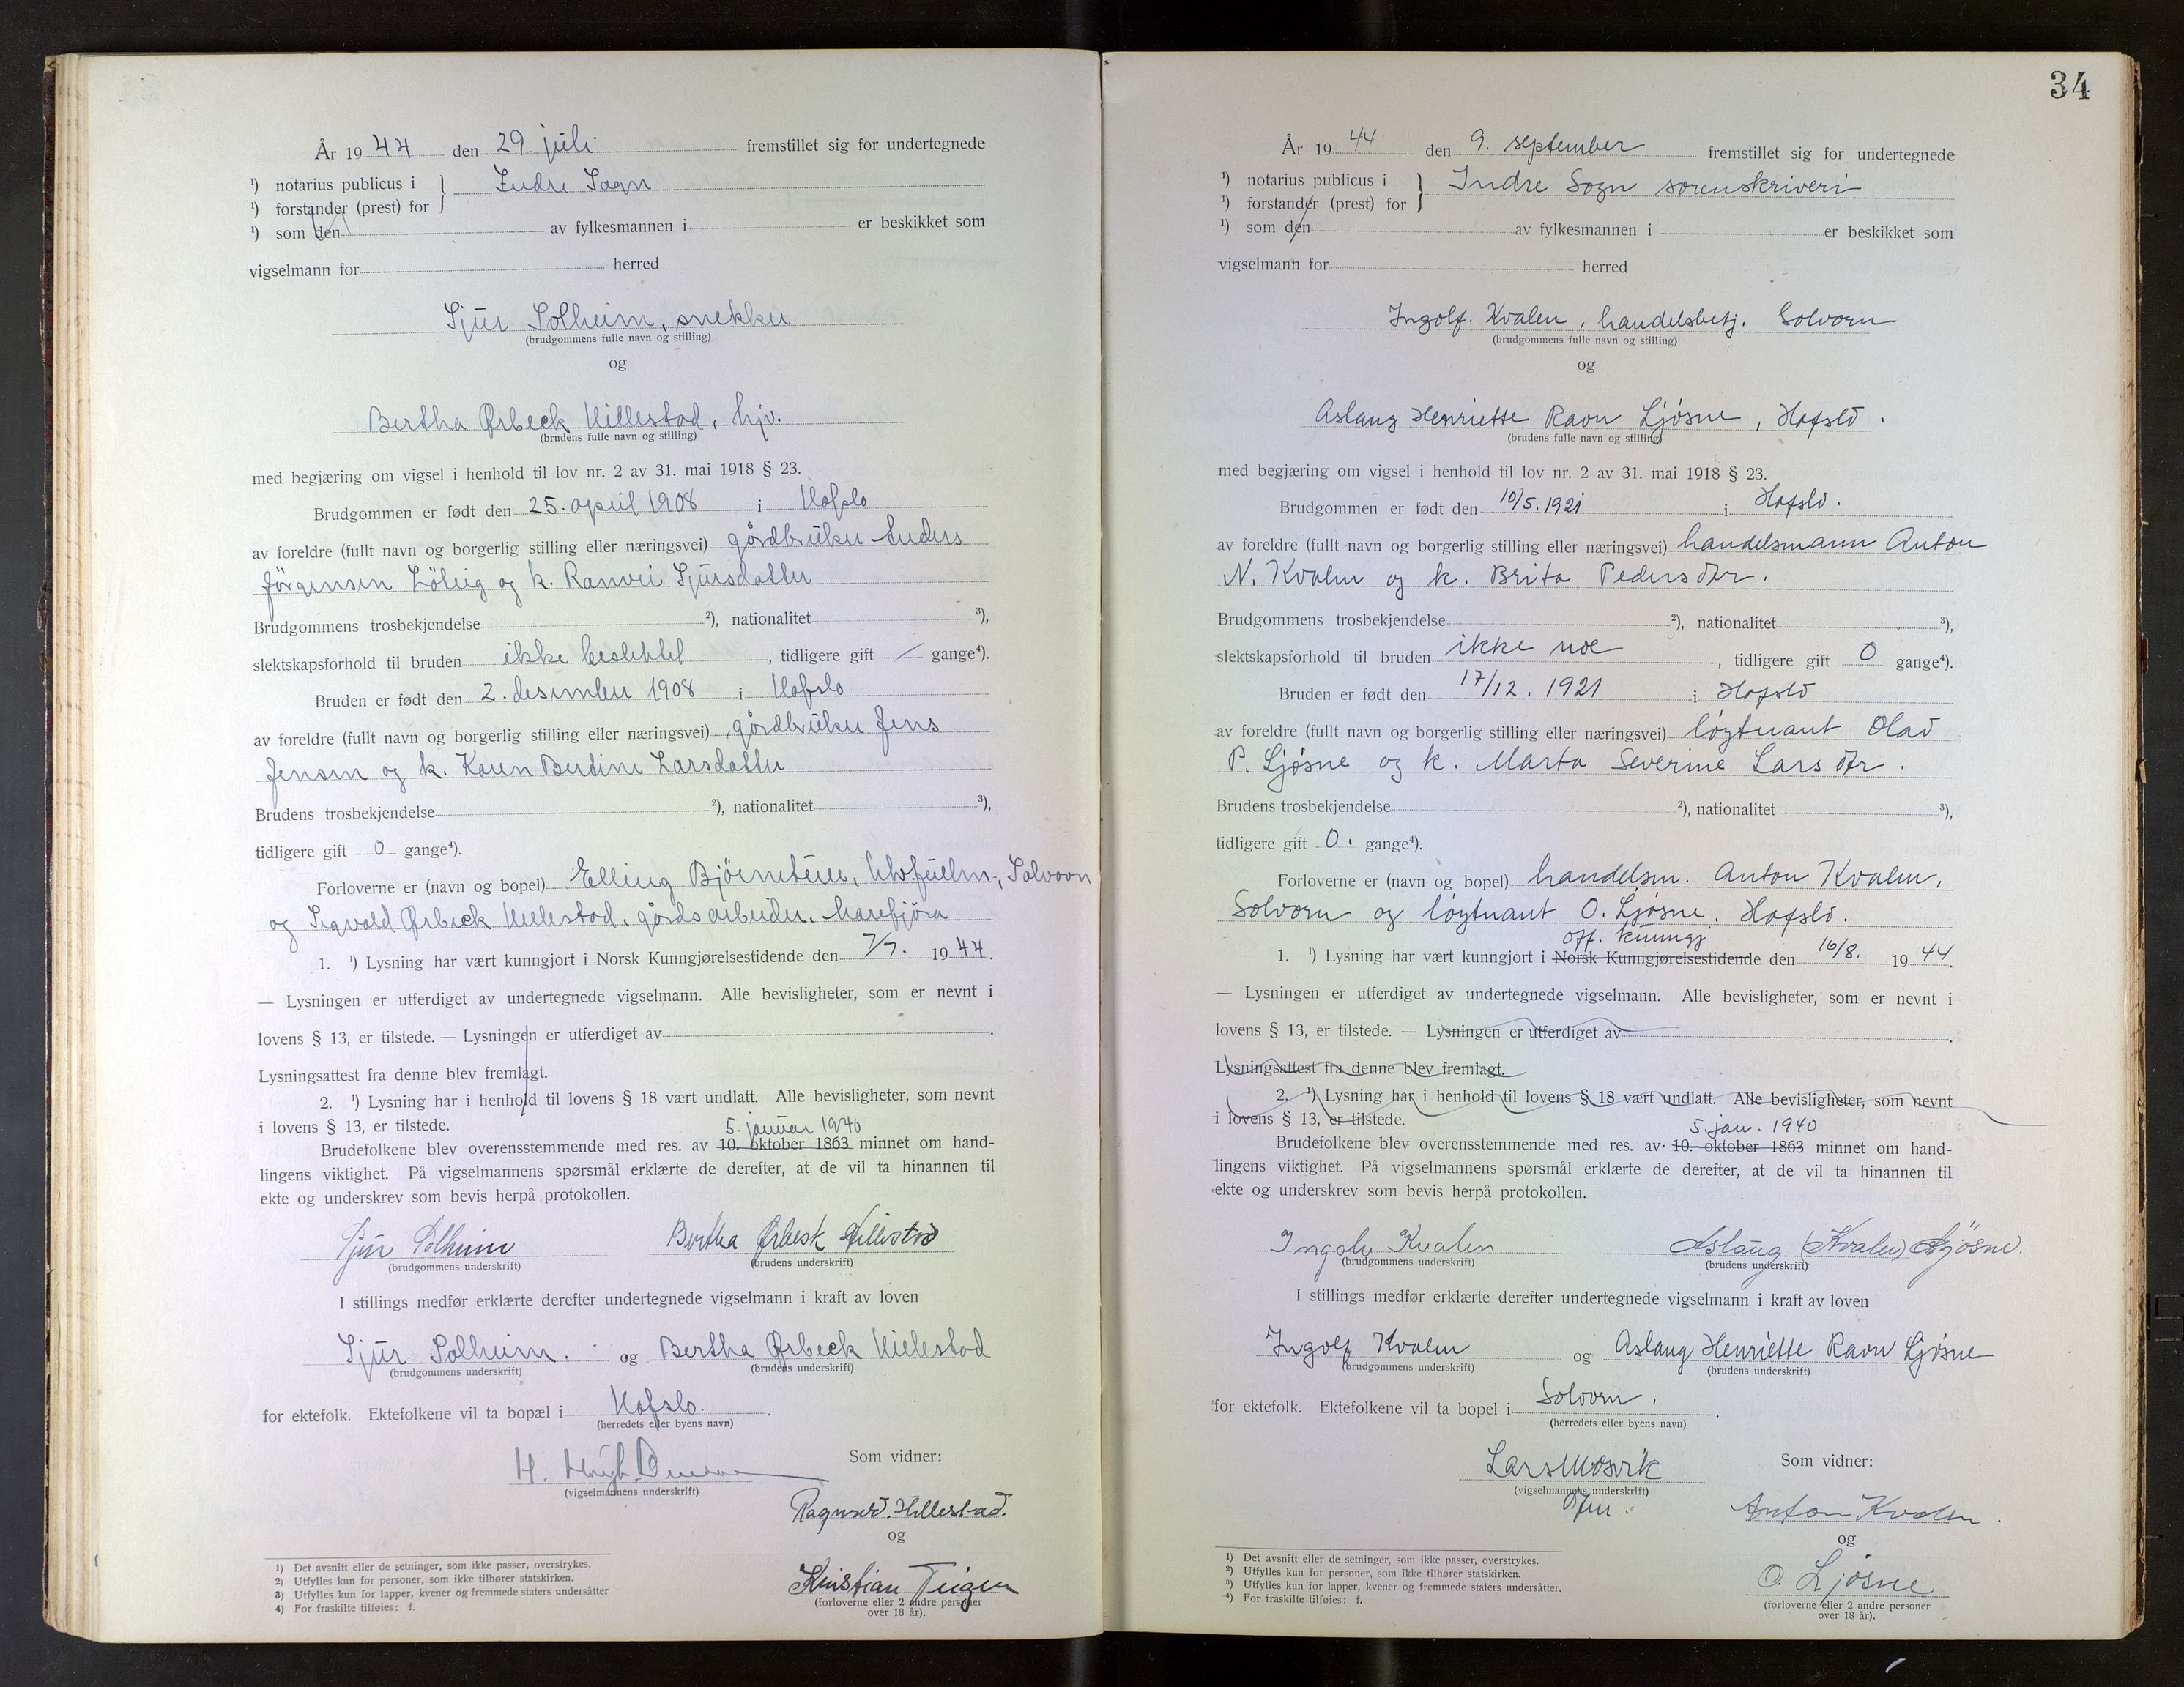 År 1944 den 29. juli fremstillet sig for undertegnede
¹) notarius publicus i } Indre Sogn
¹) forstander (prest) for
¹) som den av fylkesmannen i er beskikket som
vigselmann for herred
Sjur Solheim, snekker
(brudgommens fulle navn og stilling)
og
Bertha Ørbeck Hillestad, hjv.
(brudens fulle navn og stilling)
med begjæring om vigsel i henhold til lov nr. 2 av 31. mai 1918 § 23.
Brudgommen er født den 25. april 1908 i Hafslo
av foreldre (fullt navn og borgerlig stilling eller næringsvei) gårdbruker Anders
Jörgensen og k. Ranvei Sjursdatter
Brudgommens trosbekjendelse ²), nationalitet ³),
slektskapsforhold til bruden ikke beslektet, tidligere gift / gange⁴).
Bruden er født den 2. desember 1908 i Hafslo
av foreldre (fullt navn og borgerlig stilling eller næringsvei) gårdbruker Jens
Jensen og k. Karen Bertine Larsdatter
Brudens trosbekjendelse ²), nationalitet ³),
tidligere gift 0 gange⁴).
Forloverne er (navn og bopel) Elling Solvorn
og Sigvald Ørbeck Hillestad, gårdsarbeider, Marefjöra
1. ¹) Lysning har vært kunngjort i Norsk Kunngjørelsestidende den 7/7. 1944.
— Lysningen er utferdiget av undertegnede vigselmann. Alle bevisligheter, som er nevnt i
lovens § 13, er tilstede. — Lysningen er utferdiget av
Lysningsattest fra denne blev fremlagt.
2. ¹) Lysning har i henhold til lovens § 18 vært undlatt. Alle bevisligheter, som nevnt
i lovens § 13, er tilstede.
5. januar 1940
Brudefolkene blev overensstemmende med res. av 10. oktober 1863 minnet om hand-
lingens viktighet. På vigselmannens spørsmål erklærte de derefter, at de vil ta hinannen til
ekte og underskrev som bevis herpå protokollen.
Sjur Solheim Bertha Ørbeck Hillestad
(brudgommens underskrift) (brudens underskrift)
I stillings medfør erklærte derefter undertegnede vigselmann i kraft av loven
Sjur Solheim. og Bertha Ørbeck Hillestad
(brudgommens underskrift) (brudens underskrift)
for ektefolk. Ektefolkene vil ta bopæl i Hafslo.
(herredets eller byens navn)
H. Som vidner:
(vigselmannens underskrift)
Hillestad.
og
Kristian Teigen
(forloverne eller 2 andre personer
over 18 år).
1) Det avsnitt eller de setninger, som ikke passer, overstrykes.
2) Utfylles kun for personer, som ikke tilhører statskirken.
3) Utfylles kun for lapper, kvener og fremmede staters undersåtter
4) For fraskilte tilføies: f.
34
År 1944 den 9. september fremstillet sig for undertegnede
¹) notarius publicus i } Indre Sogn sorenskriveri
¹) forstander (prest) for
¹) som den av fylkesmannen i er beskikket som
vigselmann for herred
Ingolf Kvalen, handelsbetj. Solvorn
(brudgommens fulle navn og stilling)
og
Aslaug Henriette Ravn Ljøsne, Hafslo.
(brudens fulle navn og stilling)
med begjæring om vigsel i henhold til lov nr. 2 av 31. mai 1918 § 23.
Brudgommen er født den 10/5. 1921 i Hafslo.
av foreldre (fullt navn og borgerlig stilling eller næringsvei) handelsmann Anton
N. Kvalen og k. Brita Pedersdtr.
Brudgommens trosbekjendelse ²), nationalitet ³),
slektskapsforhold til bruden ikke noe, tidligere gift 0 gange⁴).
Bruden er født den 17/12. 1921 i Hafslo
av foreldre (fullt navn og borgerlig stilling eller næringsvei) løytnant Olav
P. Ljøsne og k. Marta Severine Larsdtr.
Brudens trosbekjendelse ²), nationalitet ³),
tidligere gift 0. gange⁴).
Forloverne er (navn og bopel) handelsm. Anton Kvalen,
Solvorn og løytnant O. Ljøsne, Hafslo.
off. kunngj
1. ¹) Lysning har vært kunngjort i Norsk Kunngjørelsestidende den 16/8. 1944.
— Lysningen er utferdiget av undertegnede vigselmann. Alle bevisligheter, som er nevnt i
lovens § 13, er tilstede. — Lysningen er utferdiget av
Lysningsattest fra denne blev fremlagt.
2. ¹) Lysning har i henhold til lovens § 18 vært undlatt. Alle bevisligheter, som nevnt
i lovens § 13, er tilstede.
5 jan. 1940
Brudefolkene blev overensstemmende med res. av 10. oktober 1863 minnet om hand-
lingens viktighet. På vigselmannens spørsmål erklærte de derefter, at de vil ta hinannen til
ekte og underskrev som bevis herpå protokollen.
Ingolv Kvalen Aslaug (Kvalen) Ljøsne.
(brudgommens underskrift) (brudens underskrift)
I stillings medfør erklærte derefter undertegnede vigselmann i kraft av loven
Ingolf Kvalen og Aslaug Henriette Ravn Ljøsne
(brudgommens underskrift) (brudens underskrift)
for ektefolk. Ektefolkene vil ta bopel i Solvorn.
(herredets eller byens navn)
Lars Mosvik Som vidner:
(vigselmannens underskrift)
Anton Kvalen.
og
O. Ljøsne
(forloverne eller 2 andre personer
over 18 år).
1) Det avsnitt eller de setninger, som ikke passer, overstrykes.
2) Utfylles kun for personer, som ikke tilhører statskirken.
3) Utfylles kun for lapper, kvener og fremmede staters undersåtter.
4) For fraskilte tilføies: f.